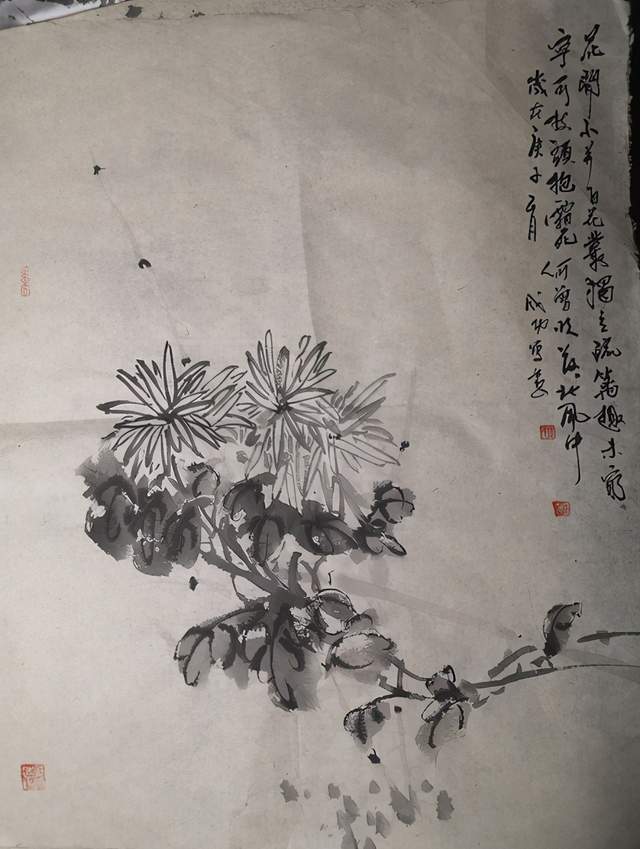 花開不并百花叢獨立疏籬趣未窮
寧可枝頭抱霜死何曾吹落北風中
歲在庚子月
成功寫意